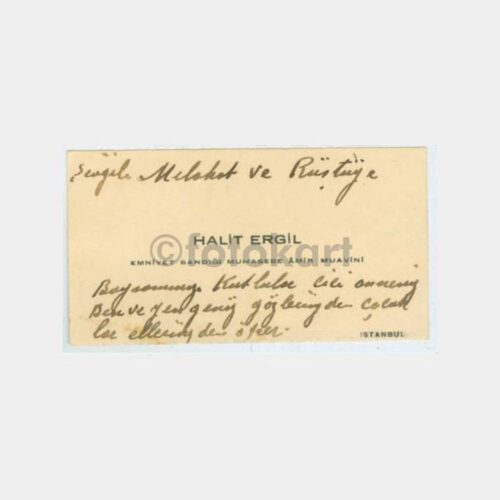 Sevgili Melahat ve Rüştüye
HALİT ERGİL
©fotokart
EMNİYET SANDIĞI MUHASEBE ÂMİR MUAVİNİ
Bayramınızı Kutlular cici anneniz
Ben ve yengeniz gözlerinizden çocuk
lar ellerinizden öper.
İSTANBUL